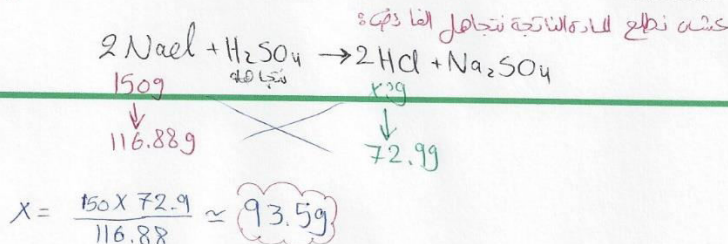 عشان نطلع المادة الناتجة نتجاهل الفائض:
2Nacl + H₂SO₄ → 2HCl + Na₂SO₄
150g نتجاهله x?g
↓ ↓
116.88g 72.9g
X = 150 X 72.9 / 116.88 ≃ 93.5g